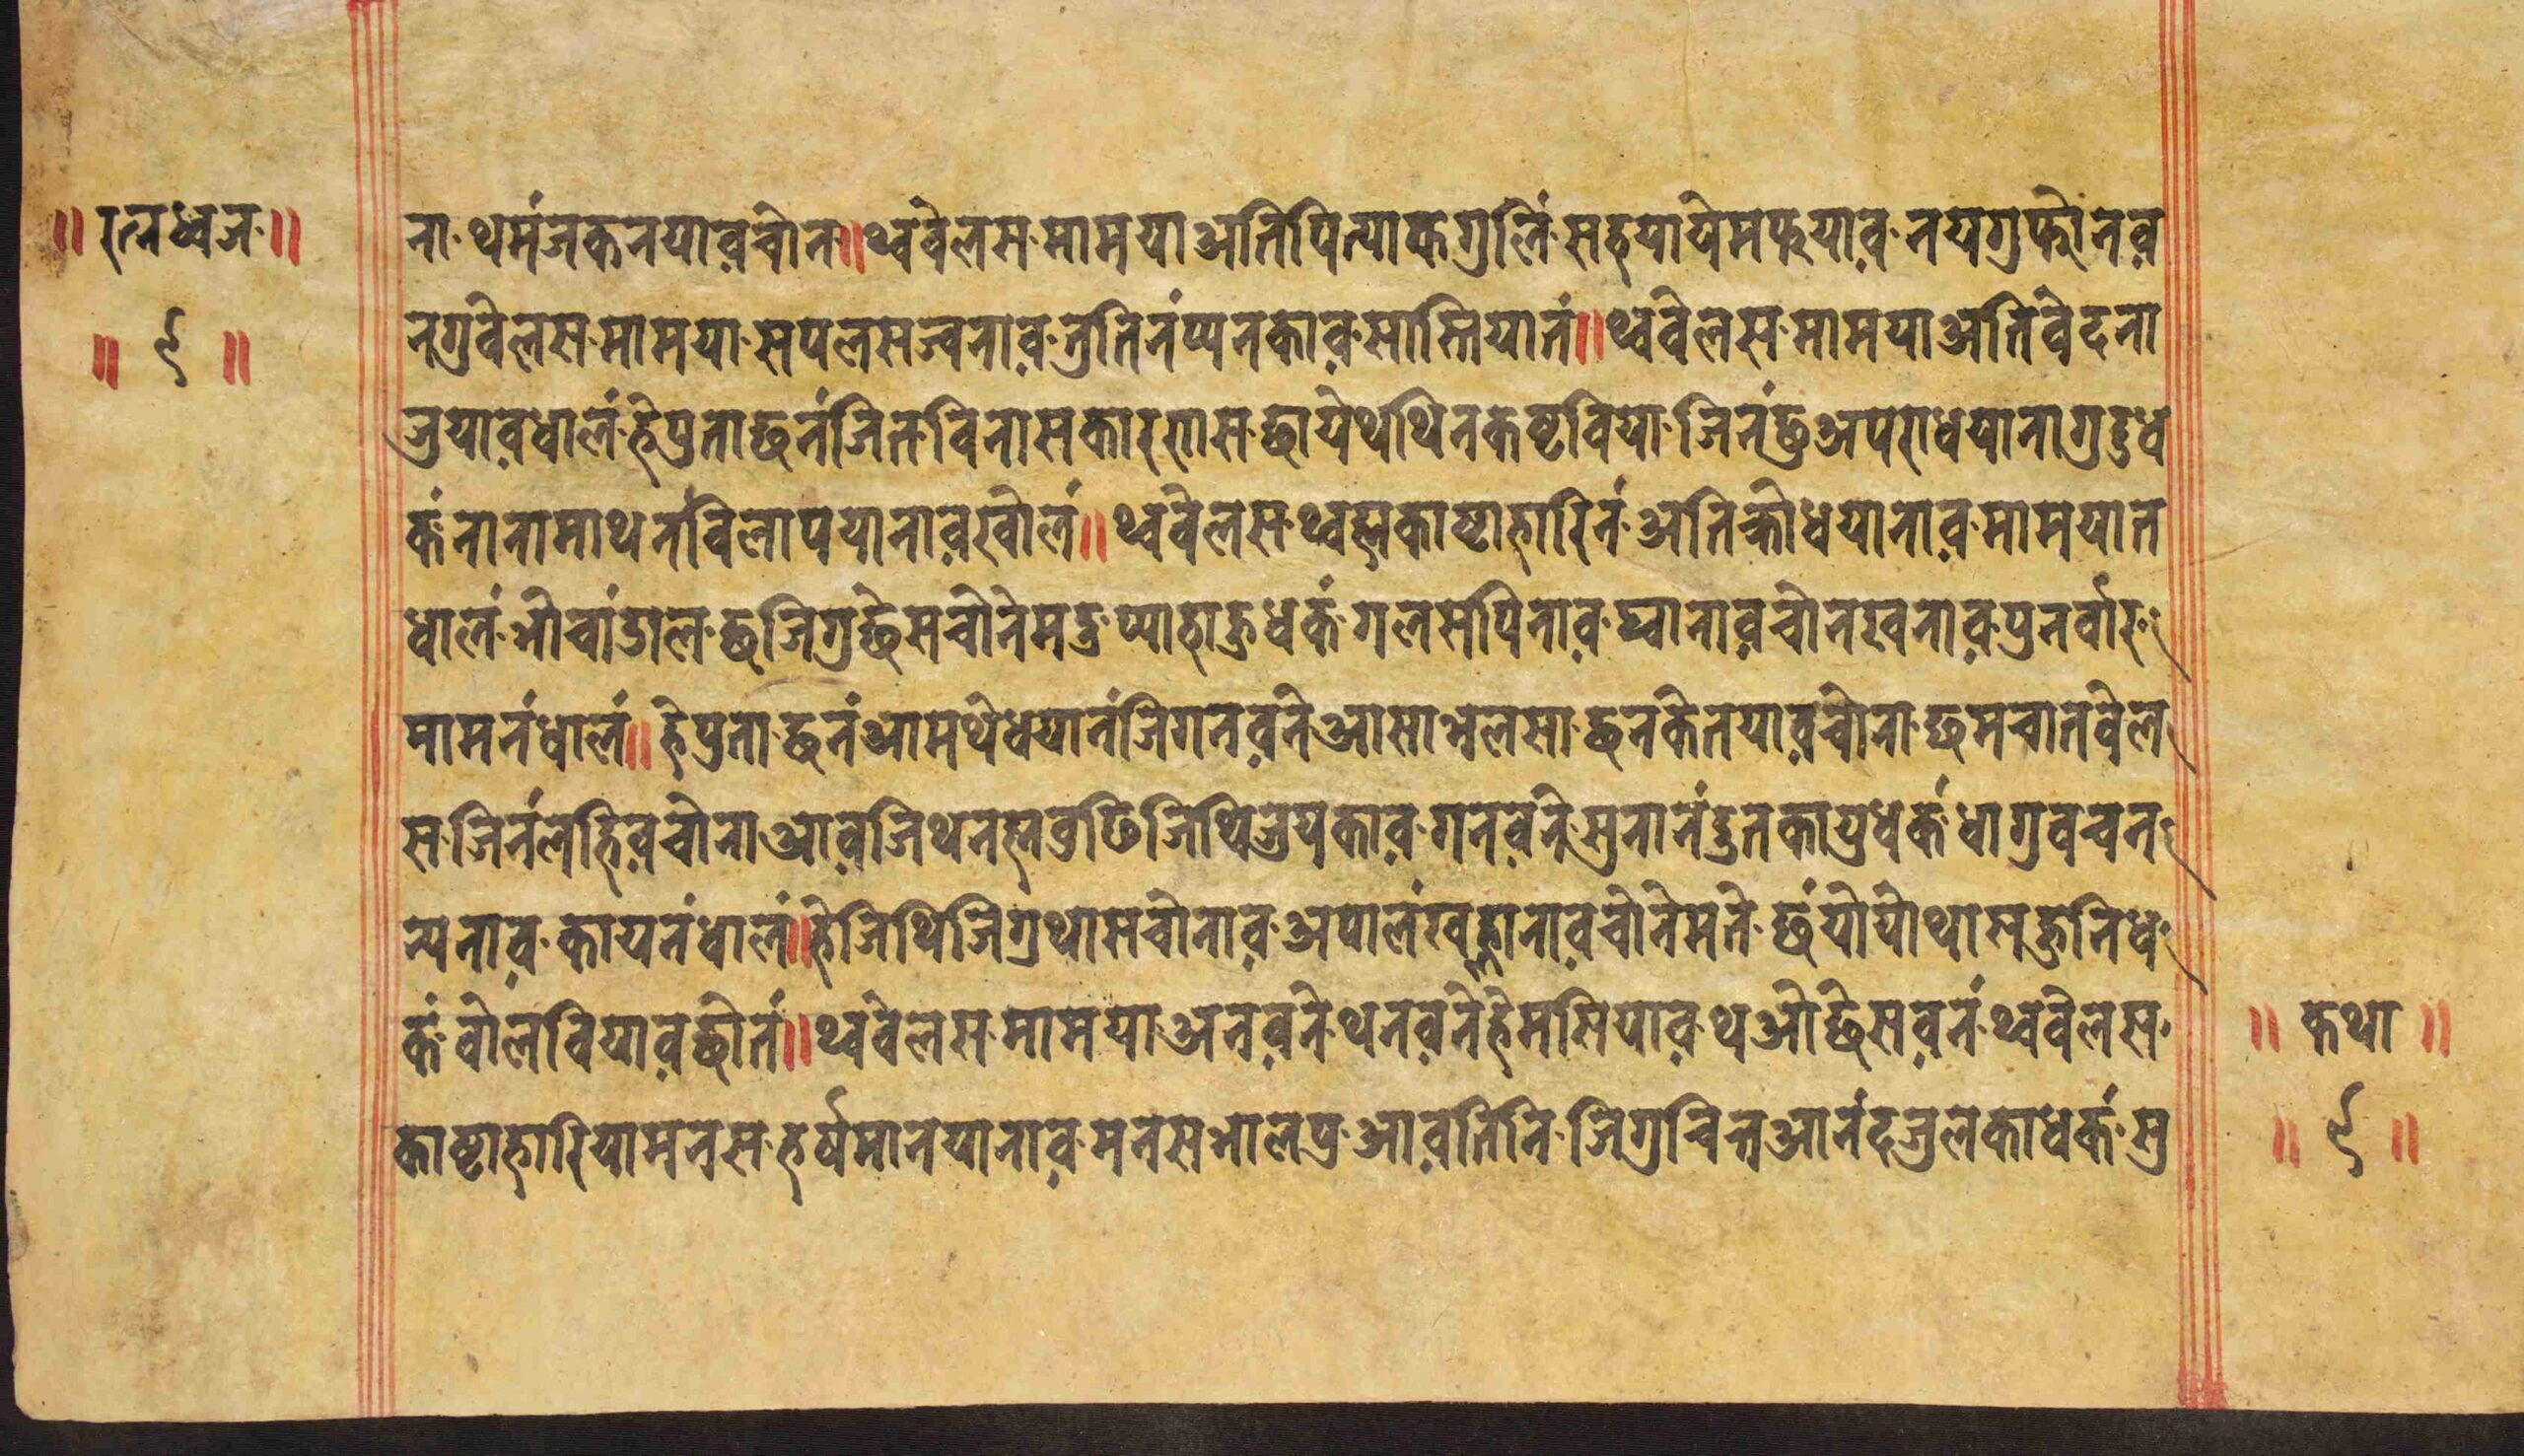 ॥ रत्नध्वज ॥
॥ ९ ॥
ना थमंजकनयाव़चोन॥थ्ववेलस मामया अतिपित्याकगुलिं सहयायेमफयाव़ नयगुफोनव़
नगुवेलस मामया सपलसज्वनाव़ नुतिनंप्यनकाव़ सास्तियानं॥थ्ववेलस मामया अतिवेदना
जुयाव़धालं हेपुताछनंजितविनासकारणस छायेथथिनकष्टविया जिनंछुअपराधयानागुदुध
कं नानामाथनंविलापयानाव़खोलं॥ थ्ववेलस थ्वह्मकाष्टाहारिनं अतिक्रोधयानाव़ मामयात
धालं भोचांडाल छजिगुछेसचोनेमदु प्याहाहुधकं गलसेपिनाव़ घ्वानाव़चोनखनाव़ पुनर्वार
मामनंधालं॥ हेपुता छनंआमथेधयानंजिगनव़ने आसाभलसा छनकेतयाव़चोना छमचातवेल
स जिनंलहिव़चोना आव़जिथनह्मवुढिजिथिजुयकाव़ गनव़ने मुनानंदुतकायुधकं धागुवचन
न्यनाव़ कायनंधालं॥हेजिथिजिगुथासचोनाव़ अपालंखह्लानाव़चोनेमते छंयोयोथासहुनिध
कं वोलवियाव़छोतं॥थ्ववेलस मामया अनव़ने थनव़नेहेमसियाव़ थओछेसव़नं थ्ववेलस
काष्टाहारियामनस हर्षमानयानाव़ मनसभालपु आव़तिनि जिगुचित्तआनंदजुलकाधकं सु
॥ कथा ॥
॥ ९ ॥